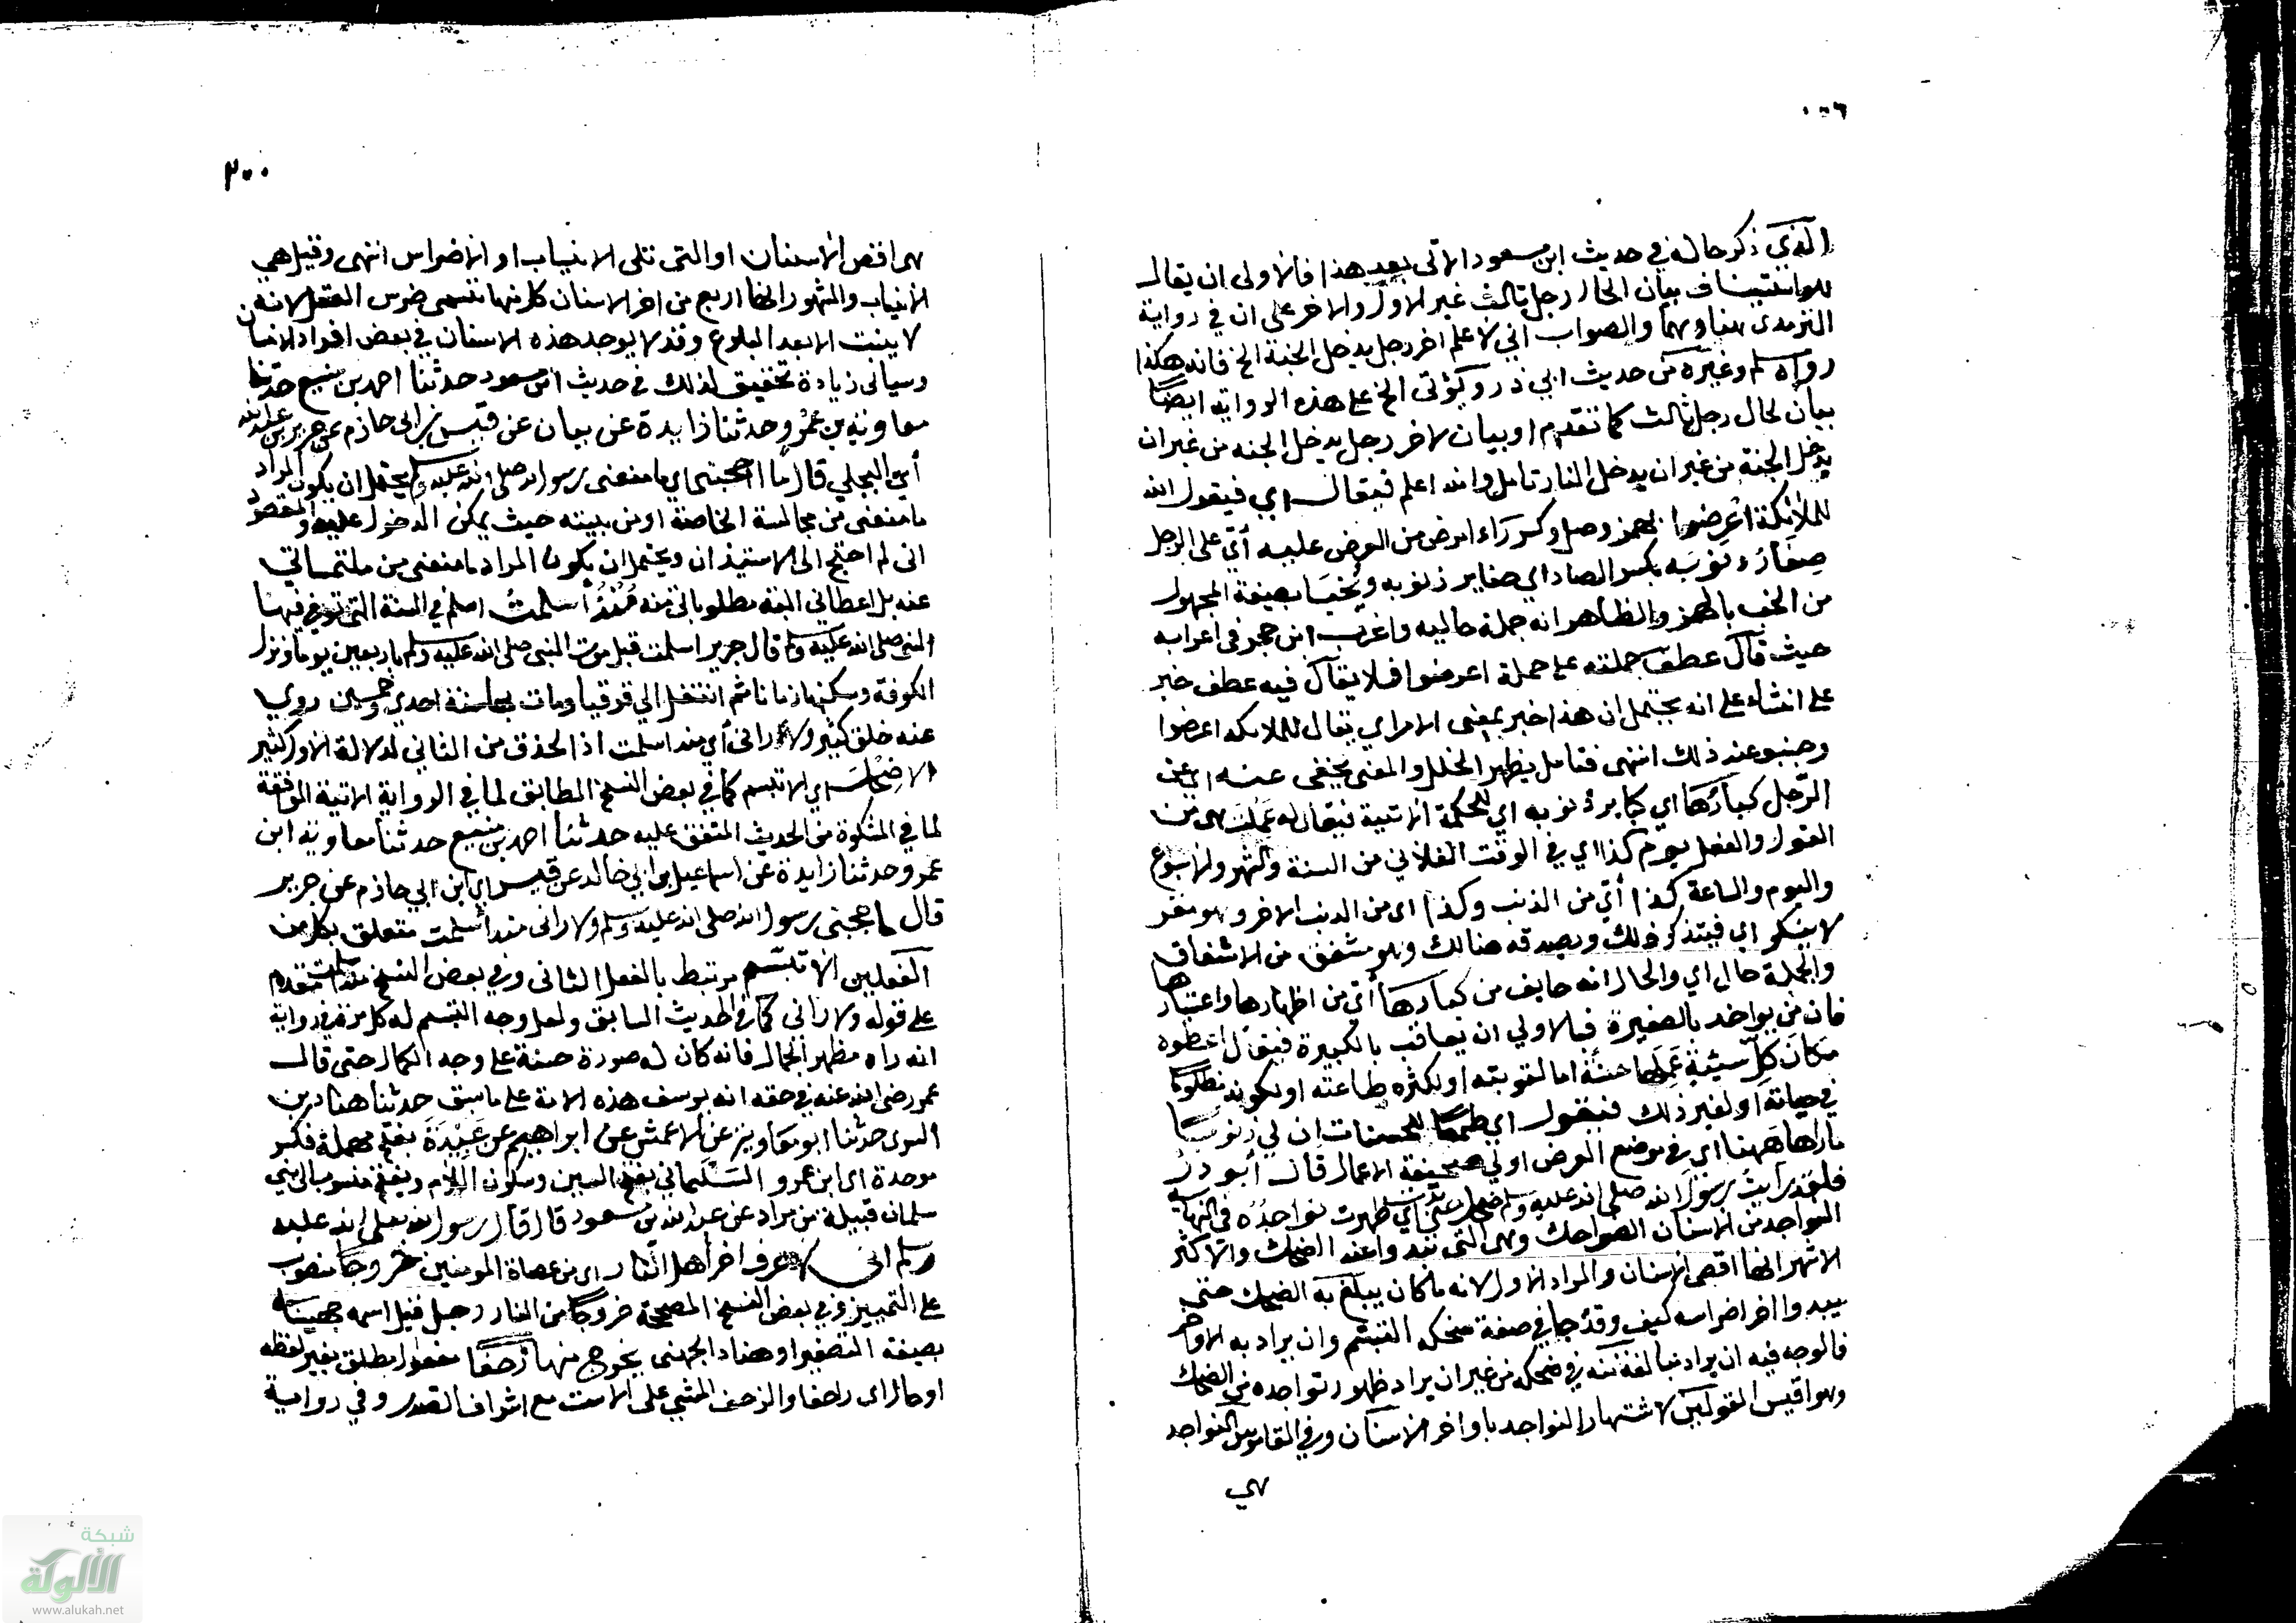 الذي ذكر حاله في حديث ابن مسعود الآتي بعد هذا فالاولى ان يقال
هو استيناف بيان الحال رجل ثالث غير الاول والاخر على ان في رواية
الترمذي هنا وهما والصواب اني لا علم اخر رجل يدخل الجنة الخ فانه هكذا
رواه مسلم وغيره من حديث ابي ذر ويؤتى الخ على هذه الرواية ايضا
بيان لحال رجل ثالث كما تقدم او بيان لاخر رجل يدخل الجنه من غير ان
يدخل الجنة من غير ان يدخل النار تامل والله اعلم فيقال اي فيقول الله
للملائكة اعرضوا بهمز وصل وكسر راء امر من العرض عليه أي على الرجل
صغار ذنوبه بكسر الصاد اي صغاير ذنوبه ويخبا بصيغة المجهول
من الخب بالهمز والظاهر انه جملة حاليه واغرب ابن حجر في اعرابه
حيث قال عطف جملته على جملة اعرضوا فلا يقال فيه عطف خبر
على انشاء على انه يحتمل ان هذا خبر بمعنى الامر اي يقال للملائكه اعرضوا
وجنبو عند ذلك انتهى فتامل يظهر الخلل والمعنى يخفى عنه اي عن
الرجل كبارها اي كباير ذنوبه اي للحكمة الاتية فيقال له عملت هي من
القول والفعل يوم كذا اي في الوقت الفلاني من السنة والشهر والاسبوع
واليوم والساعة كذا أي من الذنب وكذا اي من الذنب الاخر وهو مقر
لا ينكر اي فيتذكر ذلك ويصدقه هنالك وهو مشفق من الاشفاق
والجملة حال اي والحال انه خايف من كبارها أي من اظهارها واعتبارها
فان من يواخذ بالصغيرة فالاولي ان يعاقب بالكبيرة فيقال اعطوه
مكان كل سيئة عملها حسنة اما لتوبته او لكثرة طاعته او لكونه مظلوما
في حياته او لغير ذلك فيقول اي طمعا للحسنات ان لي ذنوبا
ما اراها ههنا اي في موضع العرض او في صحيفة الاعمال قال أبو ذر
فلقد رايت رسول الله صلى الله عليه وسلم ضحك حتى بدت أي ظهرت نواجذه في النهاية
النواجذ من الاسنان الضواحك وهي التي تبدوا عند الضحك والاكثر
الاشهر انها اقصى الاسنان والمراد الاول لانه ما كان يبلغ به الضحك حتى
يبدوا اخر اضراسه كيف وقد جا في صفة ضحكه التبسم وان يراد به الاواخر
فالوجه فيه ان يراد مبالغة مثله في ضحكه من غير ان يراد ظهور نواجذه في الضحك
وهو اقيس القولين لاشتهار النواجذ باواخر الاسنان وفي القاموس النواجذ
هي
٢٠٠
هي اقصى الاسنان او التي تلى الانياب او الاضراس انتهى وقيل هي
الانياب والمشهور انها اربع من اخر الاسنان كل منها تسمى ضرس العقل لانه
لا ينبت الا بعد البلوغ وقد لا يوجد هذه الاسنان في بعض افراد الانسان
وسياتى زيادة تحقيق لذلك في حديث ابن مسعود حدثنا احمد بن منيع حدثنا
معاوية بن عمرو حدثنا زايدة عن بيان عن قيس بن ابي حازم عن جرير بن عبد الله
أي البجلي قال ما حجبني اي ما منعني رسول الله صلى الله عليه وسلم يحتمل ان يكون المراد
ما منعني من مجالسة الخاصة او من بيته حيث يمكن الدخول عليه والمقصود
انى لم احتج الى الاستيذان ويحتمل ان يكون المراد ما منعني من ملتمساتي
عنه بل اعطاني البتة مطلوباتى منه منذ أسلمت اسلم في السنة التي توفي فيها
النبى صلى الله عليه وسلم قال جرير اسلمت قبل موت النبى صلى الله عليه وسلم باربعين يوما ونزل
الكوفة وسكنها زمانا ثم انتقل الي قرقيا ومات بها سنة احدى وخمسين روي
عنه خلق كثير ولا راني أي منذ اسلمت اذ الحذف من الثاني لدلالة الاول كثير
الا ضحك اي الا تبسم كما في بعض النسخ المطابق لما في الرواية الاتية الموافقة
لما في المشكوة من الحديث المتفق عليه حدثنا احمد بن منيع حدثنا معاوية ابن
عمرو حدثنا زايدة عن اسماعيل بن ابي خالد عن قيس اي ابن ابي حازم عن جرير
قال ما حجبني رسول الله صلى الله عليه وسلم ولا راني منذ أسلمت متعلق بكل من
الفعلين الا تبسم مرتبط بالفعل الثاني وفي بعض النسخ منذ اسلمت متقدم
على قوله ولا راني كما في الحديث السابق ولعل وجه التبسم له كل مرة في رواية
انه راه مظهر الجمال فانه كان له صورة حسنة على وجه الكمال حتى قال
عمر رضي الله عنه في حقه انه يوسف هذه الامة على ما سبق حدثنا هناد بن
السرى حدثنا ابو معاوية عن الاعمش عن ابراهيم عن عبيدة بفتح مهملة فكسر
موحدة اى ابن عمرو السلماني بفتح السين وسكون اللام ويفتح منسوب الى بني
سلمان قبيلة من مراد عن عبد الله بن مسعود قال قال رسول الله صلى الله عليه
وسلم اني لاعرف اخر أهل النار اى من عصاة المومنين خروجا منصوب
على التمييز وفي بعض النسخ المصححة خروجا من النار رجل قيل اسمه جهينة
بصيغة التصغير او هناد الجهني يخرج منها زحفا مفعول مطلق بغير لفظه
او حال اى زاحفا والزحف المشي على الاست مع اشراف الصدر وفي رواية
شبكة
الألوكة
www.alukah.net